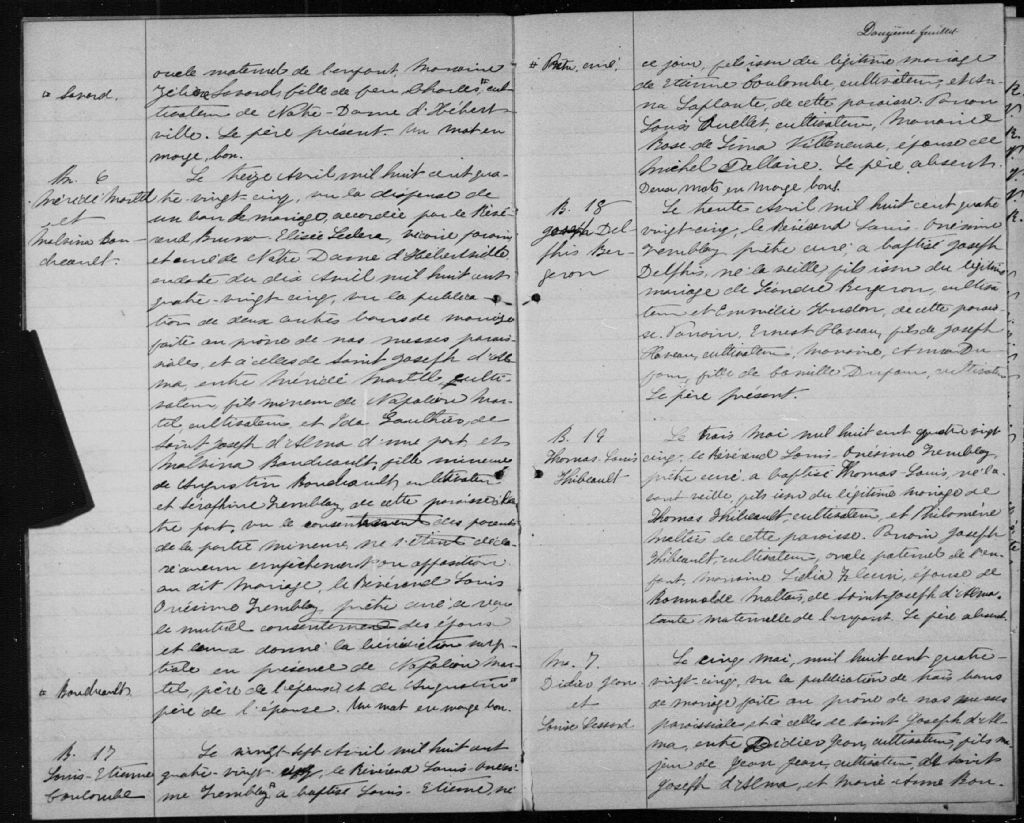 oncle maternel de l'enfant, Marraine
" Savard.
Savard, fille de feu Charles", cul-
tivateur de Notre-Dame d'Hébert-
ville. Le père présent. Un mot en
marge, bon.
M. 6
Méridé Martel
et
Malvina Bou-
dreault.
Le treize Avril mil huit cent qua-
tre-vingt-cinq, vu la dispense de
un ban de mariage, accordée par le Révé-
rend Bruno-Elisée Leclerc, vicaire forain
et curé de Notre Dame d'Hébertville,
en date du dix Avril mil huit cent
quatre-vingt cinq, vu la publica-
tion de deux autres bans de mariage
faite au prône de nos messes parois-
siales, et à celles de Saint Joseph d'Al-
ma, entre Méridé Martel, culti-
vateur, fils mineur de Napoléon Mar-
tel, cultivateur, et Ida Gauthier, de
Saint Joseph d'Alma d'une part, et
Malvina Boudreault, fille mineure
de Augustin Boudreault, cultivateur
et Séraphine Tremblay, de cette paroisse d'au-
tre part, vu le consentement des parents
de la partie mineure, ne s'étant décla-
ré aucun empêchement ou opposition
au dit mariage, le Révérend Louis
Onésime Tremblay, prêtre curé, a reçu
le mutuel consentement des époux
et leur a donné la bénédiction nup-
tiale en présence de Napoléon Mar-
tel, père de l'époux, et de Augustin"
" Boudreault
père de l'épouse. Un mot en marge bon.
B. 17
Louis-Etienne
Coulombe
Le vingt-sept Avril mil huit cent
quatre-vingt- cinq, le Révérend Louis-Onési-
me Tremblay" a baptisé Louis-Etienne, né
Douzième feuillet
" Prêtre, curé.
ce jour, fils issu du légitime mariage
de Etienne Coulombe, cultivateur, et An-
na Laplante, de cette paroisse. Parrain
Louis Ouellet, cultivateur, Marraine
Rose de Lima Villeneuve, épouse de
Michel Dallaire. Le père absent.
Deux mots en marge bons.
B. 18
Joseph Del-
phis Ber-
geron
Le trente Avril mil huit cent quatre
vingt-cinq, le Révérend Louis-Onésime
Tremblay prêtre curé, a baptisé Joseph
Delphis, né la veille, fils issu du légitime
mariage de Léandre Bergeron, cultiva-
teur et Emmélie Hudon, de cette parois-
se. Parrain, Ernest Claveau, fils de Joseph
Claveau, cultivateur, Marraine, Anna Du-
four, fille de Camille Dufour, cultivateur
Le père présent.
B. 19
Thomas-Louis
Thibeault
Le trois Mai mil huit cent quatre vingt
cinq, le Révérend Louis-Onésime Tremblay,
prêtre curé, a baptisé Thomas Louis, né l'a-
vant veille, fils issu du légitime mariage de
Thomas Thibeault, cultivateur, et Philomène
Maltais de cette paroisse. Parrain Joseph
Thibeault, cultivateur, oncle paternel de l'en-
fant, marraine Lidia Fleuri, épouse de
Romualde Maltais, de Saint Joseph d'Alma,
tante maternelle de l'enfant. Le père absent.
M. 7.
Didier Jean
et
Le cinq mai, mil huit cent quatre-
vingt-cinq, vu la publication de trois bans
de mariage faite au prône de nos messes
paroissiales et à celles de Saint Joseph d'Al-
ma, entre Didier Jean, cultivateur, fils ma-
jeur de Jean Jean, cultivateur, de Saint
Joseph d'Alma, et Marie-Anne Bou-